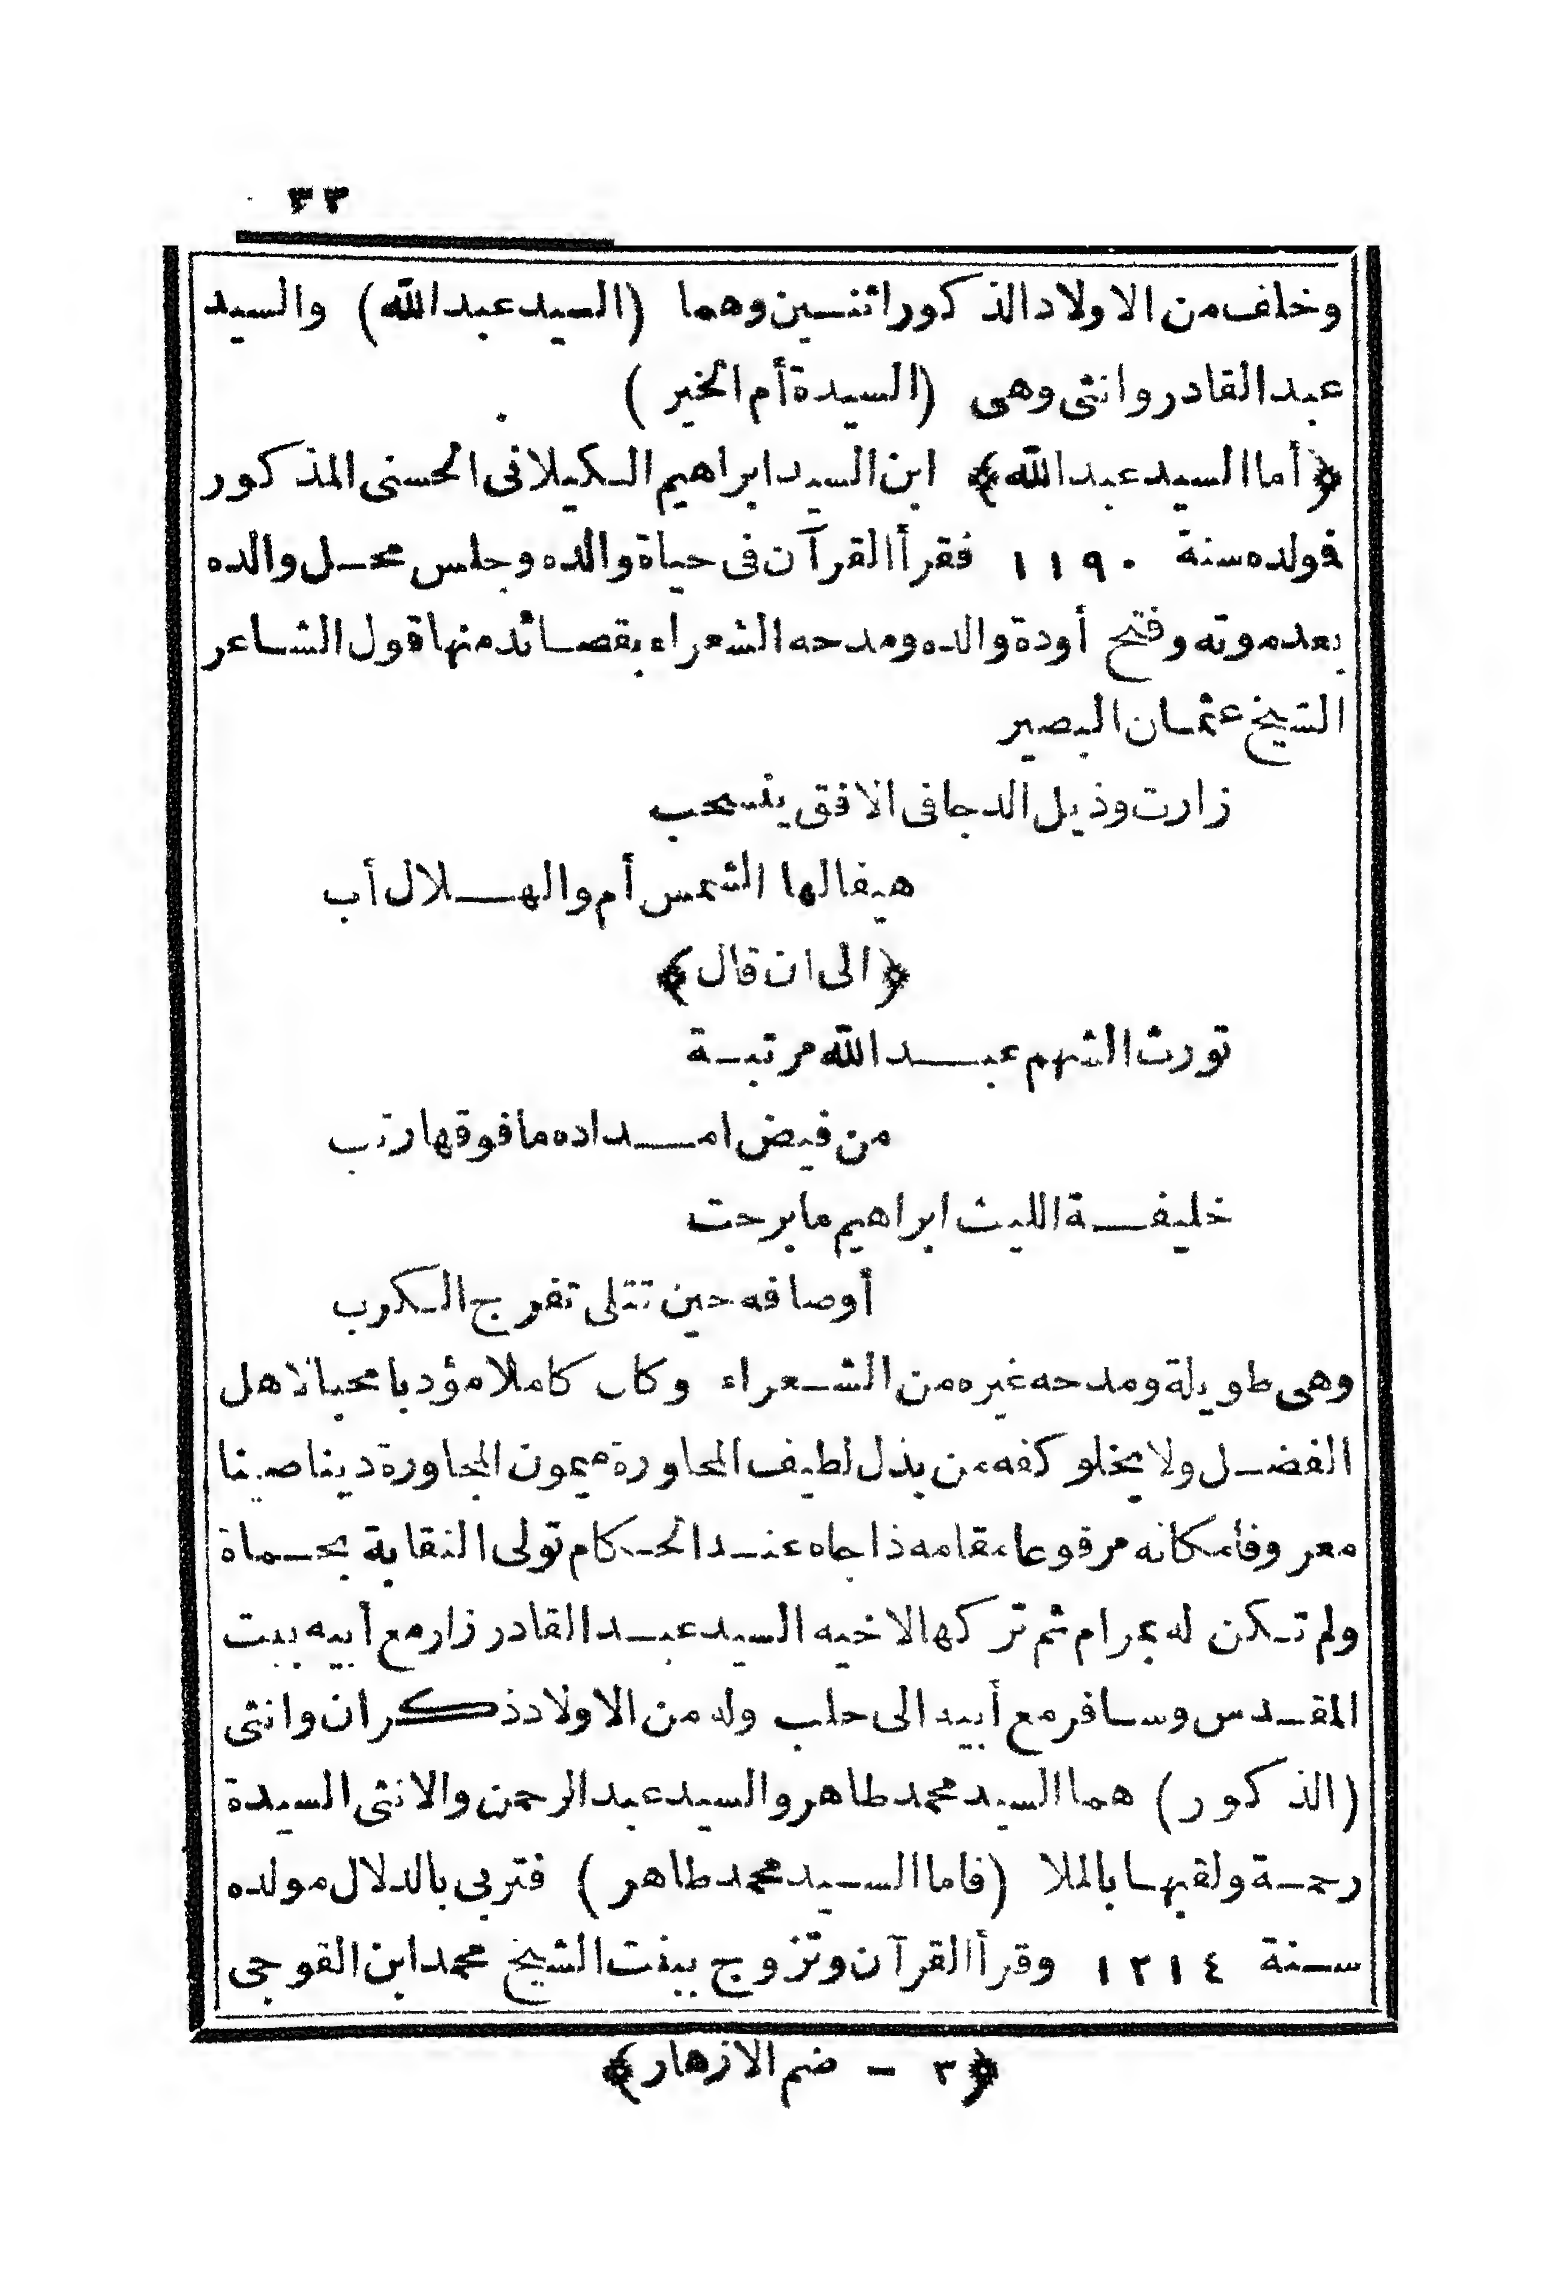 ٣٣
وخلف من الاولاد الذكور اثنين وهما (السيد عبد الله) والسيد
عبد القادر وانثى وهى (السيدة أم الخير)
﴿أما السيد عبد الله﴾ ابن السيد ابراهيم الكيلانى الحسنى المذكور
فولده سنة ١١٩٠ فقرأ القرآن فى حياة والده وجلس محل والده
بعد موته وفتح أودة والده ومدحه الشعراء بقصائد منها قول الشاعر
الشيخ عثمان البصير
زارت وذيل الدجا فى الافق ينسحب
هيفا لها الشمس أم والهلال أب
﴿الى ان قال﴾
تورث الشهم عبد الله مرتبة
من فيض امداده ما فوقها رتب
خليفة الليث ابراهيم ما برحت
أوصافه حين تتلى تفرج الكرب
وهى طويلة ومدحه غيره من الشعراء وكان كاملا مؤدبا محبا لاهل
الفضل ولا يخلو كفه من بذل لطيف المحاورة ميمون المجاورة دينا صينا
معروفا مكانه مرفوعا مقامه ذا جاه عند الحكام تولى النقابة بحماة
ولم تكن له بمرام ثم تركها لاخيه السيد عبد القادر زار مع أبيه بيت
المقدس وسافر مع أبيه الى حلب وله من الاولاد ذكران وانثى
(الذكور) هما السيد محمد طاهر والسيد عبد الرحمن والانثى السيدة
رحمة ولقبها بالملا (فاما السيد محمد طاهر) فتربى بالدلال مولده
سنة ١٢١٤ وقرأ القرآن وتزوج ببنت الشيخ محمد ابن القوجى
﴿٣ - ضم الازهار﴾